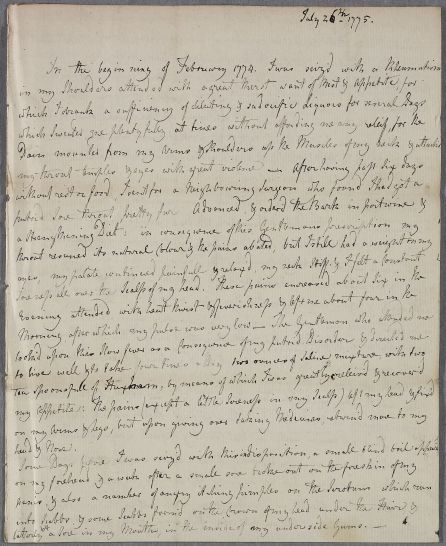 July 26th 1775.
In the beginning of February 1774. I was seiz'd with a Rheumatism
in my Shoulders attended with a great thirst want of rest & Appetite, for
which I drank a sufficiency of diluting & sudorific liquors for several Days
which sweated me plentifully at times without affording me any relief, for the
Pains mounted from my Arms & Shoulders up the Muscles of my neck & attack'd
my throat temples & eyes with great violence — After having past five days
without rest or food I sent for a Neighbouring Surgeon who found I had got a
putrid Sore throat pretty far Advanced & order'd the Bark in portwine &
a strengthening Diet: in consequence of this Gentlemans prescription my
throat resumed its natural Colour & the pains abated, but I still had a weight on my
eyes my palate continued painfull & relax'd my neck stiff, & I felt a constant
Soreness all over the Scalp of my head. These pains encreased about Six in the
Evening attended with heat thirst & feverishness & left me about four in the
Morning after which my pulse was very low — The Gentleman who attended me
look'd upon this slow fever as a Consequence of my putrid Disorder & desired me
to live well & to take four times a day two ounces of Saline mixture with two
tea spoonsfull of by means of which I was greatly relieved & recover'd
my Appetite: the pains (except a little Soreness on my Scalp) left my head & fix'd
on my Arms & legs, but upon giving over taking Medicines return'd more to my
head & Nose.
Some Days before I was seiz'd with this indisposition, a small blind boil appeared
on my forehead & a week after a small sore broke out on the foreskin of my
penis & also a number of angry itching pimples on the Scrotum which ran
into Scabbs & some Scabbs found on the Crown of my head under the Hair &
lastly a sore in my Mouth in the inside of my underside Gums. —